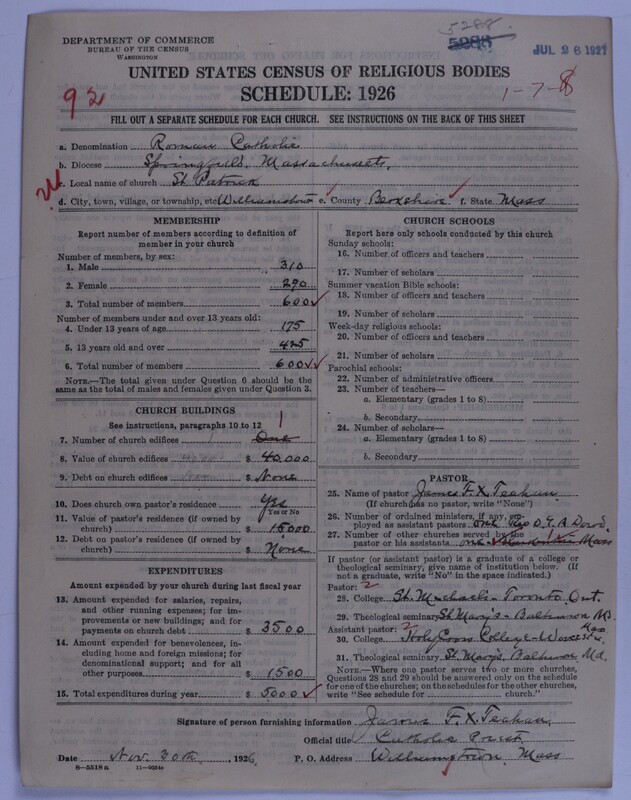 DEPARTMENT OF COMMERCE
BUREAU OF THE CENSUS
WASHINGTON
5288
5288
JUL 26 1927
UNITED STATES CENSUS OF RELIGIOUS BODIES
SCHEDULE: 1926
92
1-7-8
FILL OUT A SEPARATE SCHEDULE FOR EACH CHURCH. SEE INSTRUCTIONS ON THE BACK OF THIS SHEET
a. Denomination Roman Catholic
b. Diocese Springfield, Massachusetts.
c. Local name of church St. Patrick
d. City, town, village, or township, etc. Williamstown e. County Berkshire f. State Mass
MEMBERSHIP
Report number of members according to definition of
member in your church
Number of members, by sex:
1. Male 310
2. Female 290
3. Total number of members 600
Number of members under and over 13 years old:
4. Under 13 years of age 175
5. 13 years old and over 425
6. Total number of members 600
NOTE.—The total given under Question 6 should be the
same as the total of males and females given under Question 3.
CHURCH BUILDINGS
See instructions, paragraphs 10 to 12
1
7. Number of church edifices One
8. Value of church edifices $ 40,000
9. Debt on church edifices $ None
10. Does church own pastor's residence Yes
Yes or No
11. Value of pastor's residence (if owned by
church) $ 15000
12. Debt on pastor's residence (if owned by
church) $ None
EXPENDITURES
Amount expended by your church during last fiscal year
13. Amount expended for salaries, repairs,
and other running expenses; for im-
provements or new buildings; and for
payments on church debt $ 3500
14. Amount expended for benevolences, in-
cluding home and foreign missions; for
denominational support; and for all
other purposes $ 1500
15. Total expenditures during year $ 5000
CHURCH SCHOOLS
Report here only schools conducted by this church
Sunday schools:
16. Number of officers and teachers
17. Number of scholars
Summer vacation Bible schools:
18. Number of officers and teachers
19. Number of scholars
Week-day religious schools:
20. Number of officers and teachers
21. Number of scholars
Parochial schools:
22. Number of administrative officers
23. Number of teachers—
a. Elementary (grades 1 to 8)
b. Secondary
24. Number of scholars—
a. Elementary (grades 1 to 8)
b. Secondary
PASTOR
25. Name of pastor James F. X. Teehan
(If church has no pastor, write "None")
26. Number of ordained ministers, if any, em-
ployed as assistant pastors one
27. Number of other churches served by the
pastor or his assistants one Mass
If pastor (or assistant pastor) is a graduate of a college or
theological seminary, give name of institution below. (If
not a graduate, write "No" in the space indicated.)
Pastor: 2
28. College St. Michael's - Toronto, Ont.
29. Theological seminary St. Mary's - Baltimore Md.
Assistant pastor: 2
30. College Holy Cross College - Mass
31. Theological seminary St. Mary's, Baltimore Md.
NOTE.—Where one pastor serves two or more churches,
Questions 28 and 29 should be answered only on the schedule
for one of the churches; on the schedules for the other churches,
write "See schedule for church."
Signature of person furnishing information James F. X. Teehan,
Official title Catholic Priest
Date Nov. 30th, 1926 P. O. Address Williamstown, Mass
8—5518 a